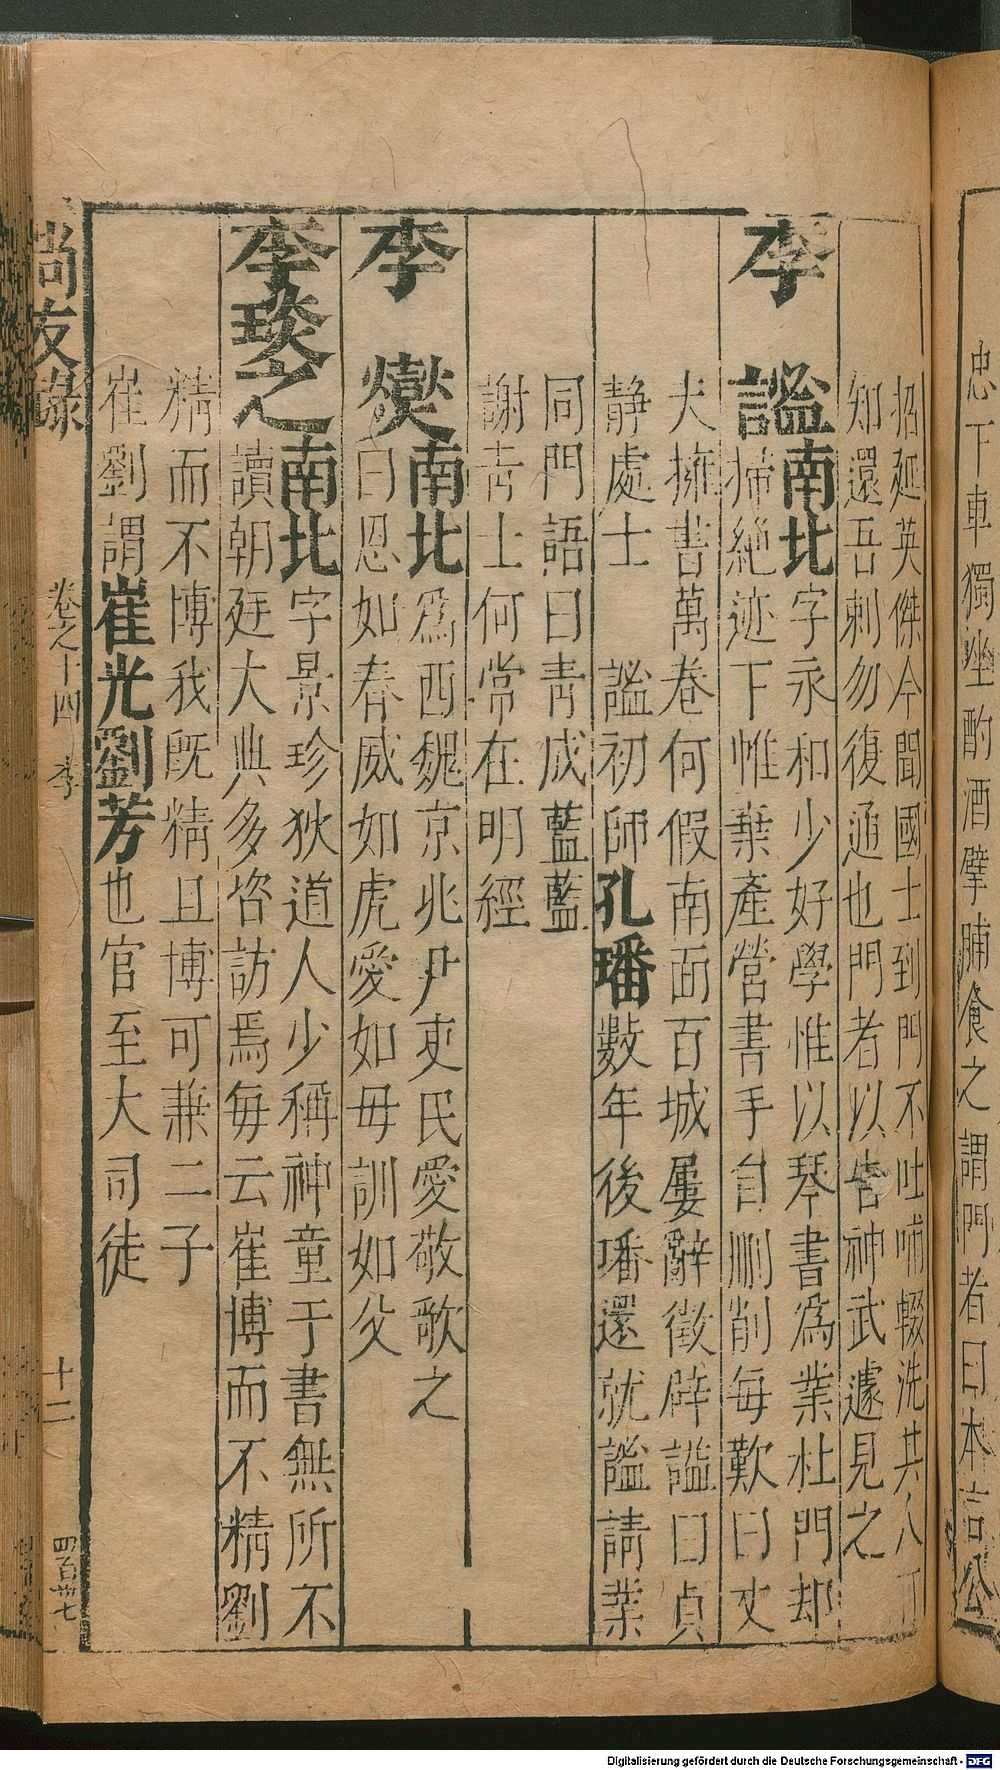 忠下車獨坐酌酒擘脯食之謂門者曰本言公
招延英傑今聞國士到門不吐哺輟洗其人可
知還吾刺勿復通也門者以告神武遽見之
李謐南北字永和少好學惟以琴書為業杜門却
掃絕迹下惟棄產營書手自刪削每歎曰丈
夫擁書萬卷何假南面百城屢辭徵辟謚曰貞
靜處士 謐初師孔璠數年後璠還就謐請業
同門語曰青成藍藍
謝青士何常在明經
李燮南北為西魏京兆尹吏民愛敬歌之
曰恩如春威如虎愛如母訓如父
李琰之南北字景珍狄道人少稱神童于書無所不
讀朝廷大典多咨訪焉每云崔博而不精劉
精而不博我既精且博可兼二子
崔劉謂崔光劉芳也官至大司徒
尚友錄 卷之十四 李 十二 四百卅七
Digitalisierung gefördert durch die Deutsche Forschungsgemeinschaft - DFG